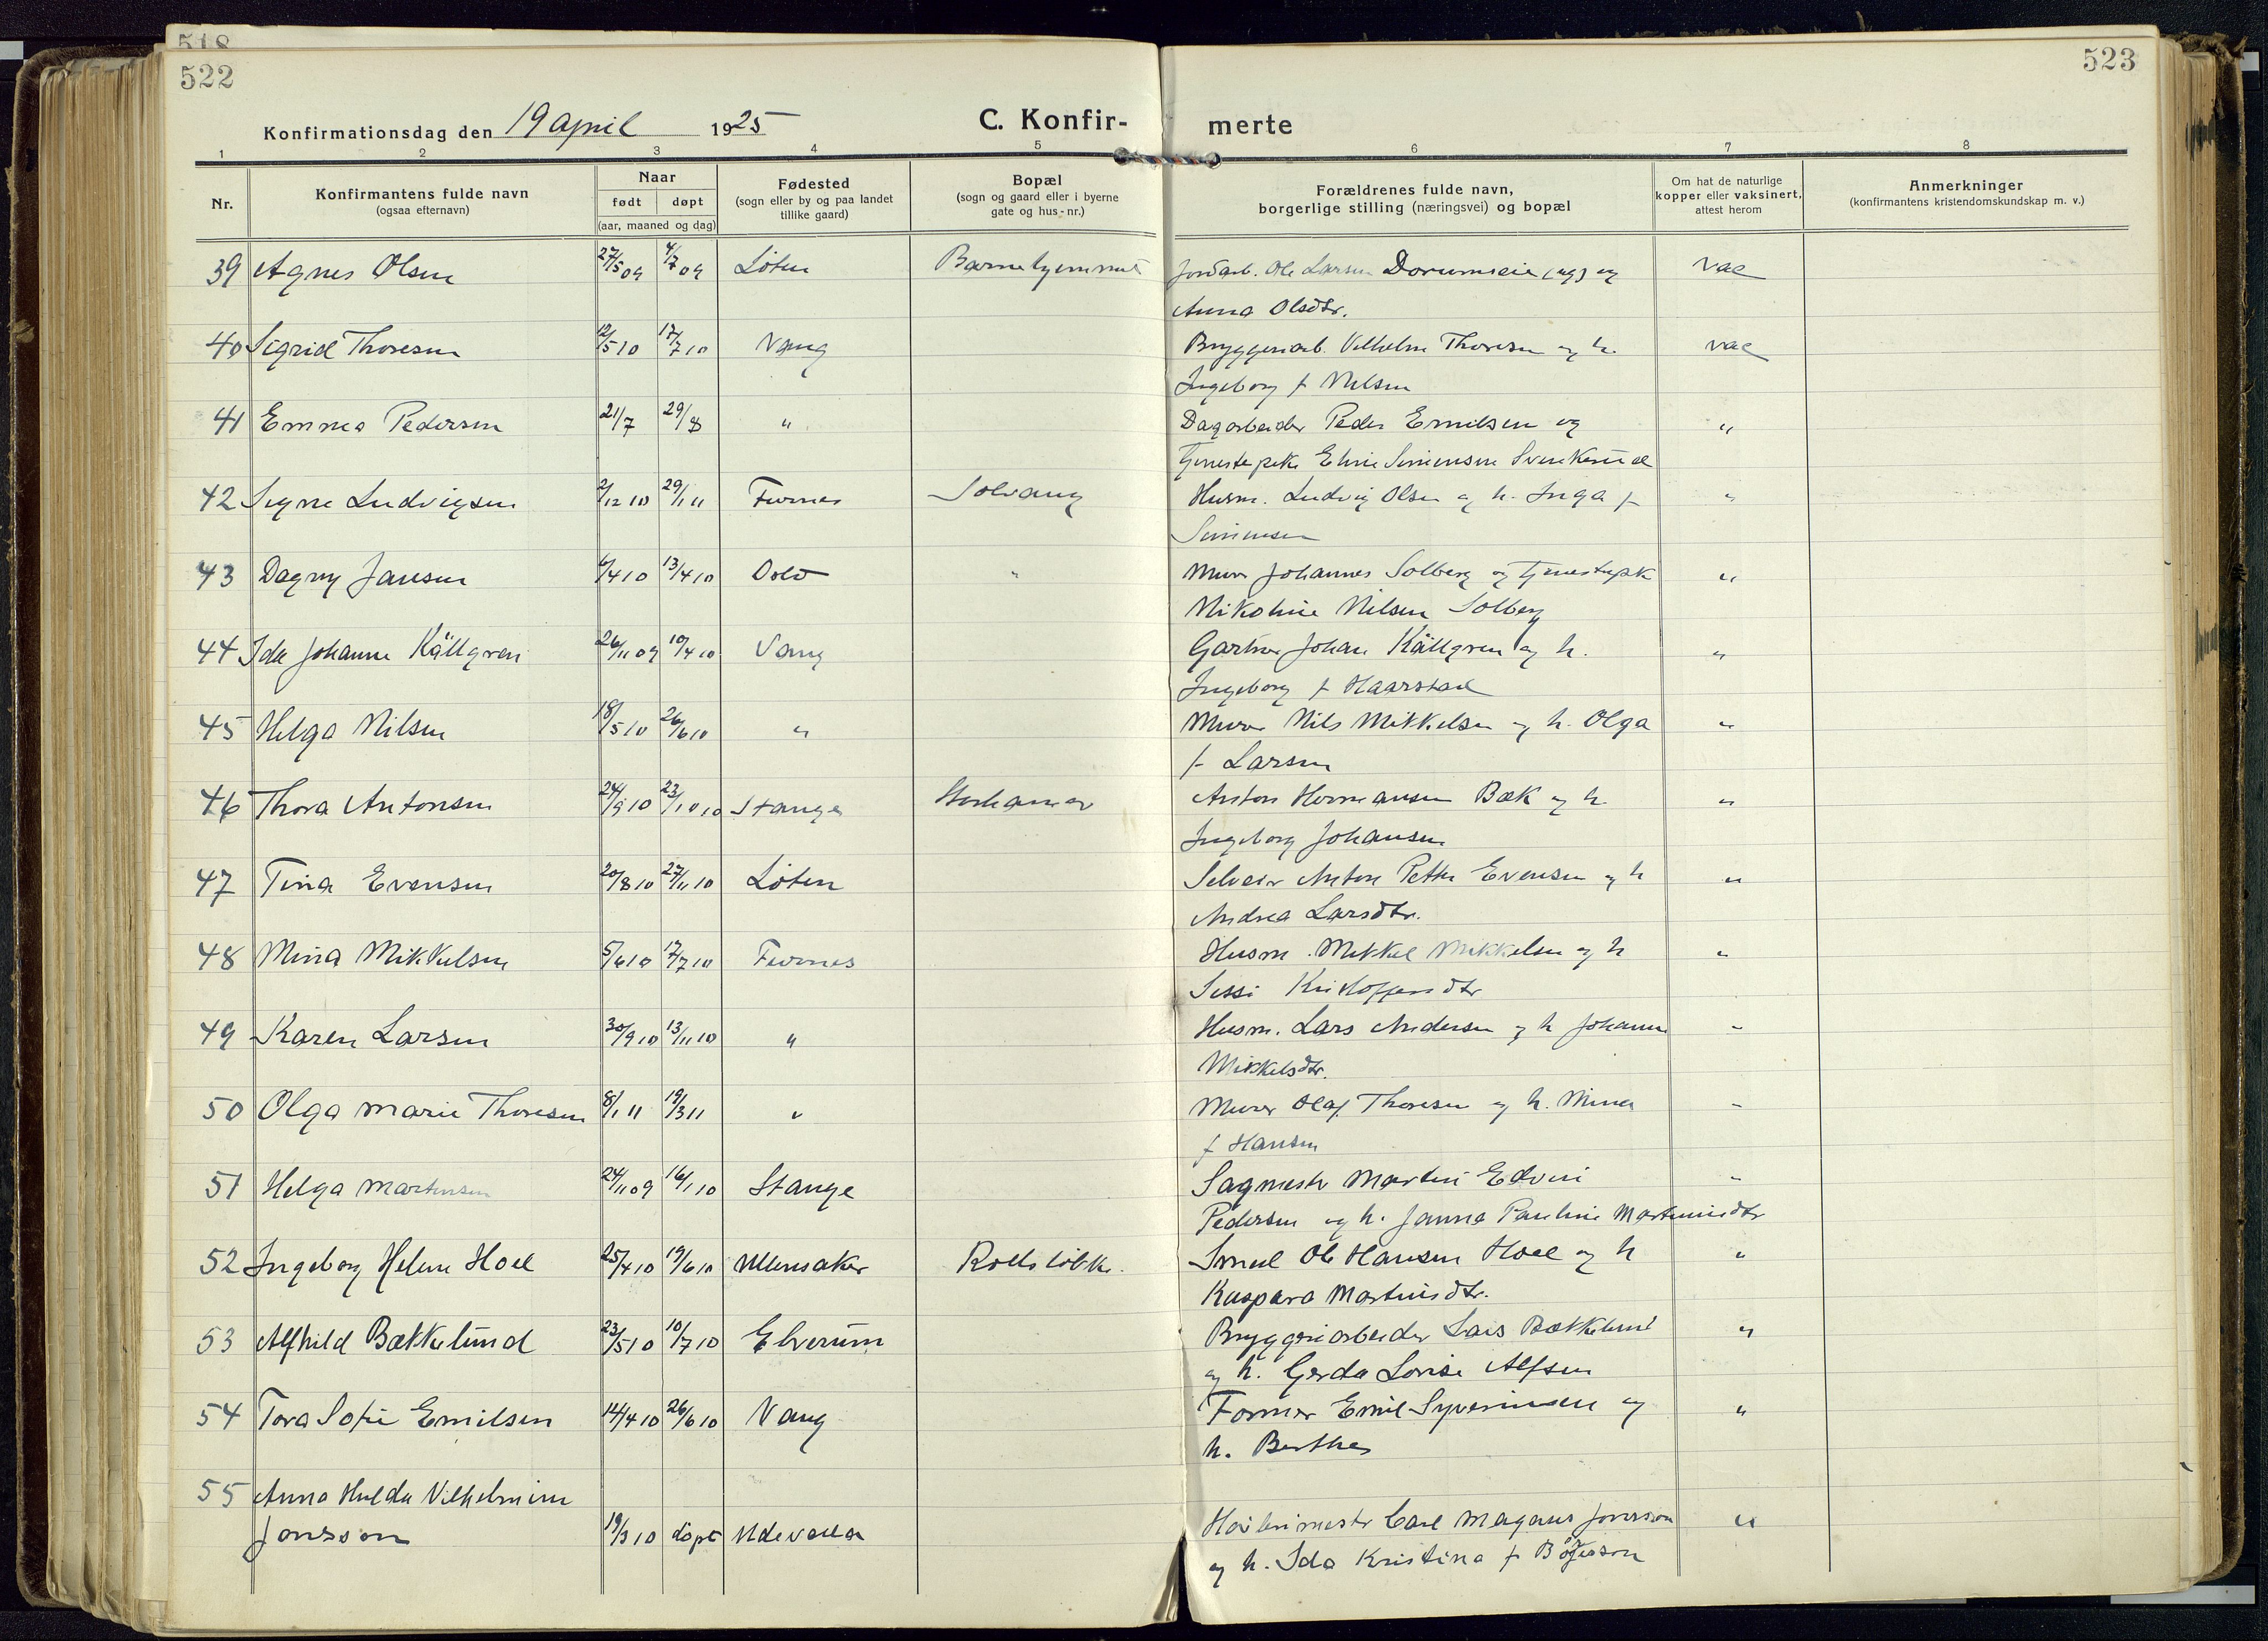 518
522
523
Konfirmationsdag den 19 april 1925
C. Konfir-
merte
1 2 3 4 5 6 7 8
Nr.
Konfirmantens fulde navn
(ogsaa efternavn)
Naar
født døpt
(aar, maaned og dag)
Fødested
(sogn eller by og paa landet
tillike gaard)
Bopæl
(sogn og gaard eller i byerne
gate og hus-nr.)
Forældrenes fulde navn,
borgerlige stilling (næringsvei) og bopæl
Om hat de naturlige
kopper eller vaksinert,
attest herom
Anmerkninger
(konfirmantens kristendomskundskap m. v.)
39 Agnes Olsen 27/5 09 4/7 09 Löten Barnehjemmet Jordarb. Ole Larsen Dorumseie (ug) og vac
Anna Olsdtr.
40 Sigrid Thoresen 12/5 10 17/7 10 Vang Bryggeriarb. Vilhelm Thoresen og h. vac
Ingeborg f Nilsen
41 Emma Pedersen 21/7 29/8 " Dagarbeider Peder Emilsen og "
Tjenestepike Eline Simensen Svenkerud
42 Signe Ludvigsen 2/12 10 29/1 11 Furnes Solvang Husm. Ludvig Olsen og h. Inga f "
Simensen
43 Dagny Jansen 6/4 10 13/4 10 Oslo " Murer Johannes Solberg og tjenestepik "
Nikoline Nilsen Solberg
44 Ida Johanne Källgren 26/11 09 10/4 10 Vang Gartner Johan Källgren og h. "
Ingeborg f Haarstad
45 Helga Nilsen 18/5 10 26/6 10 " Murer Nils Mikkelsen og h. Olga "
f Larsen
46 Thora Antonsen 24/9 10 23/10 10 Stange Storhamar Anton Hermansen Bæk og h. "
Ingeborg Johansen
47 Tina Evensen 20/8 10 27/11 10 Löten Selveier Anton Petter Evensen og h "
Andrea Larsdtr.
48 Mina Mikkelsen 5/6 10 17/7 10 Furnes Husm. Mikkel Mikkelsen og h "
Sissi Kristoffersdtr
49 Karen Larsen 30/9 10 13/11 10 " Husm. Lars Andersen og h Johanne "
Mikkelsdtr.
50 Olga Marie Thoresen 8/1 11 19/3 11 " Murer Olaf Thoresen og h. Mina "
f Hansen
51 Helga Martinsen 24/11 09 16/1 10 Stange Sagmestr Martin Edvin "
Pedersen og h. Janna Pauline Martinusdtr
52 Ingeborg Helene Hoel 25/4 10 19/6 10 Ullensaker Rollsløkka Smed Ole Hansen Hoel og h "
Kaspara Martinisdtr.
53 Alfhild Bækkelund 23/5 10 10/7 10 Elverum Bryggeriarbeider Lars Bækkelund "
og h. Gerda Lovise Alfsen
54 Tora Sofie Emilsen 14/4 10 26/6 10 Vang Former Emil Syversinsen og "
h. Berthea
55 Anna Hulda Vilhelmine
Jonsson 19/3 10 döpt Udevalla Höilerimestr Carl Magnus Jonsson "
og h. Ida Kristina f Börjesson